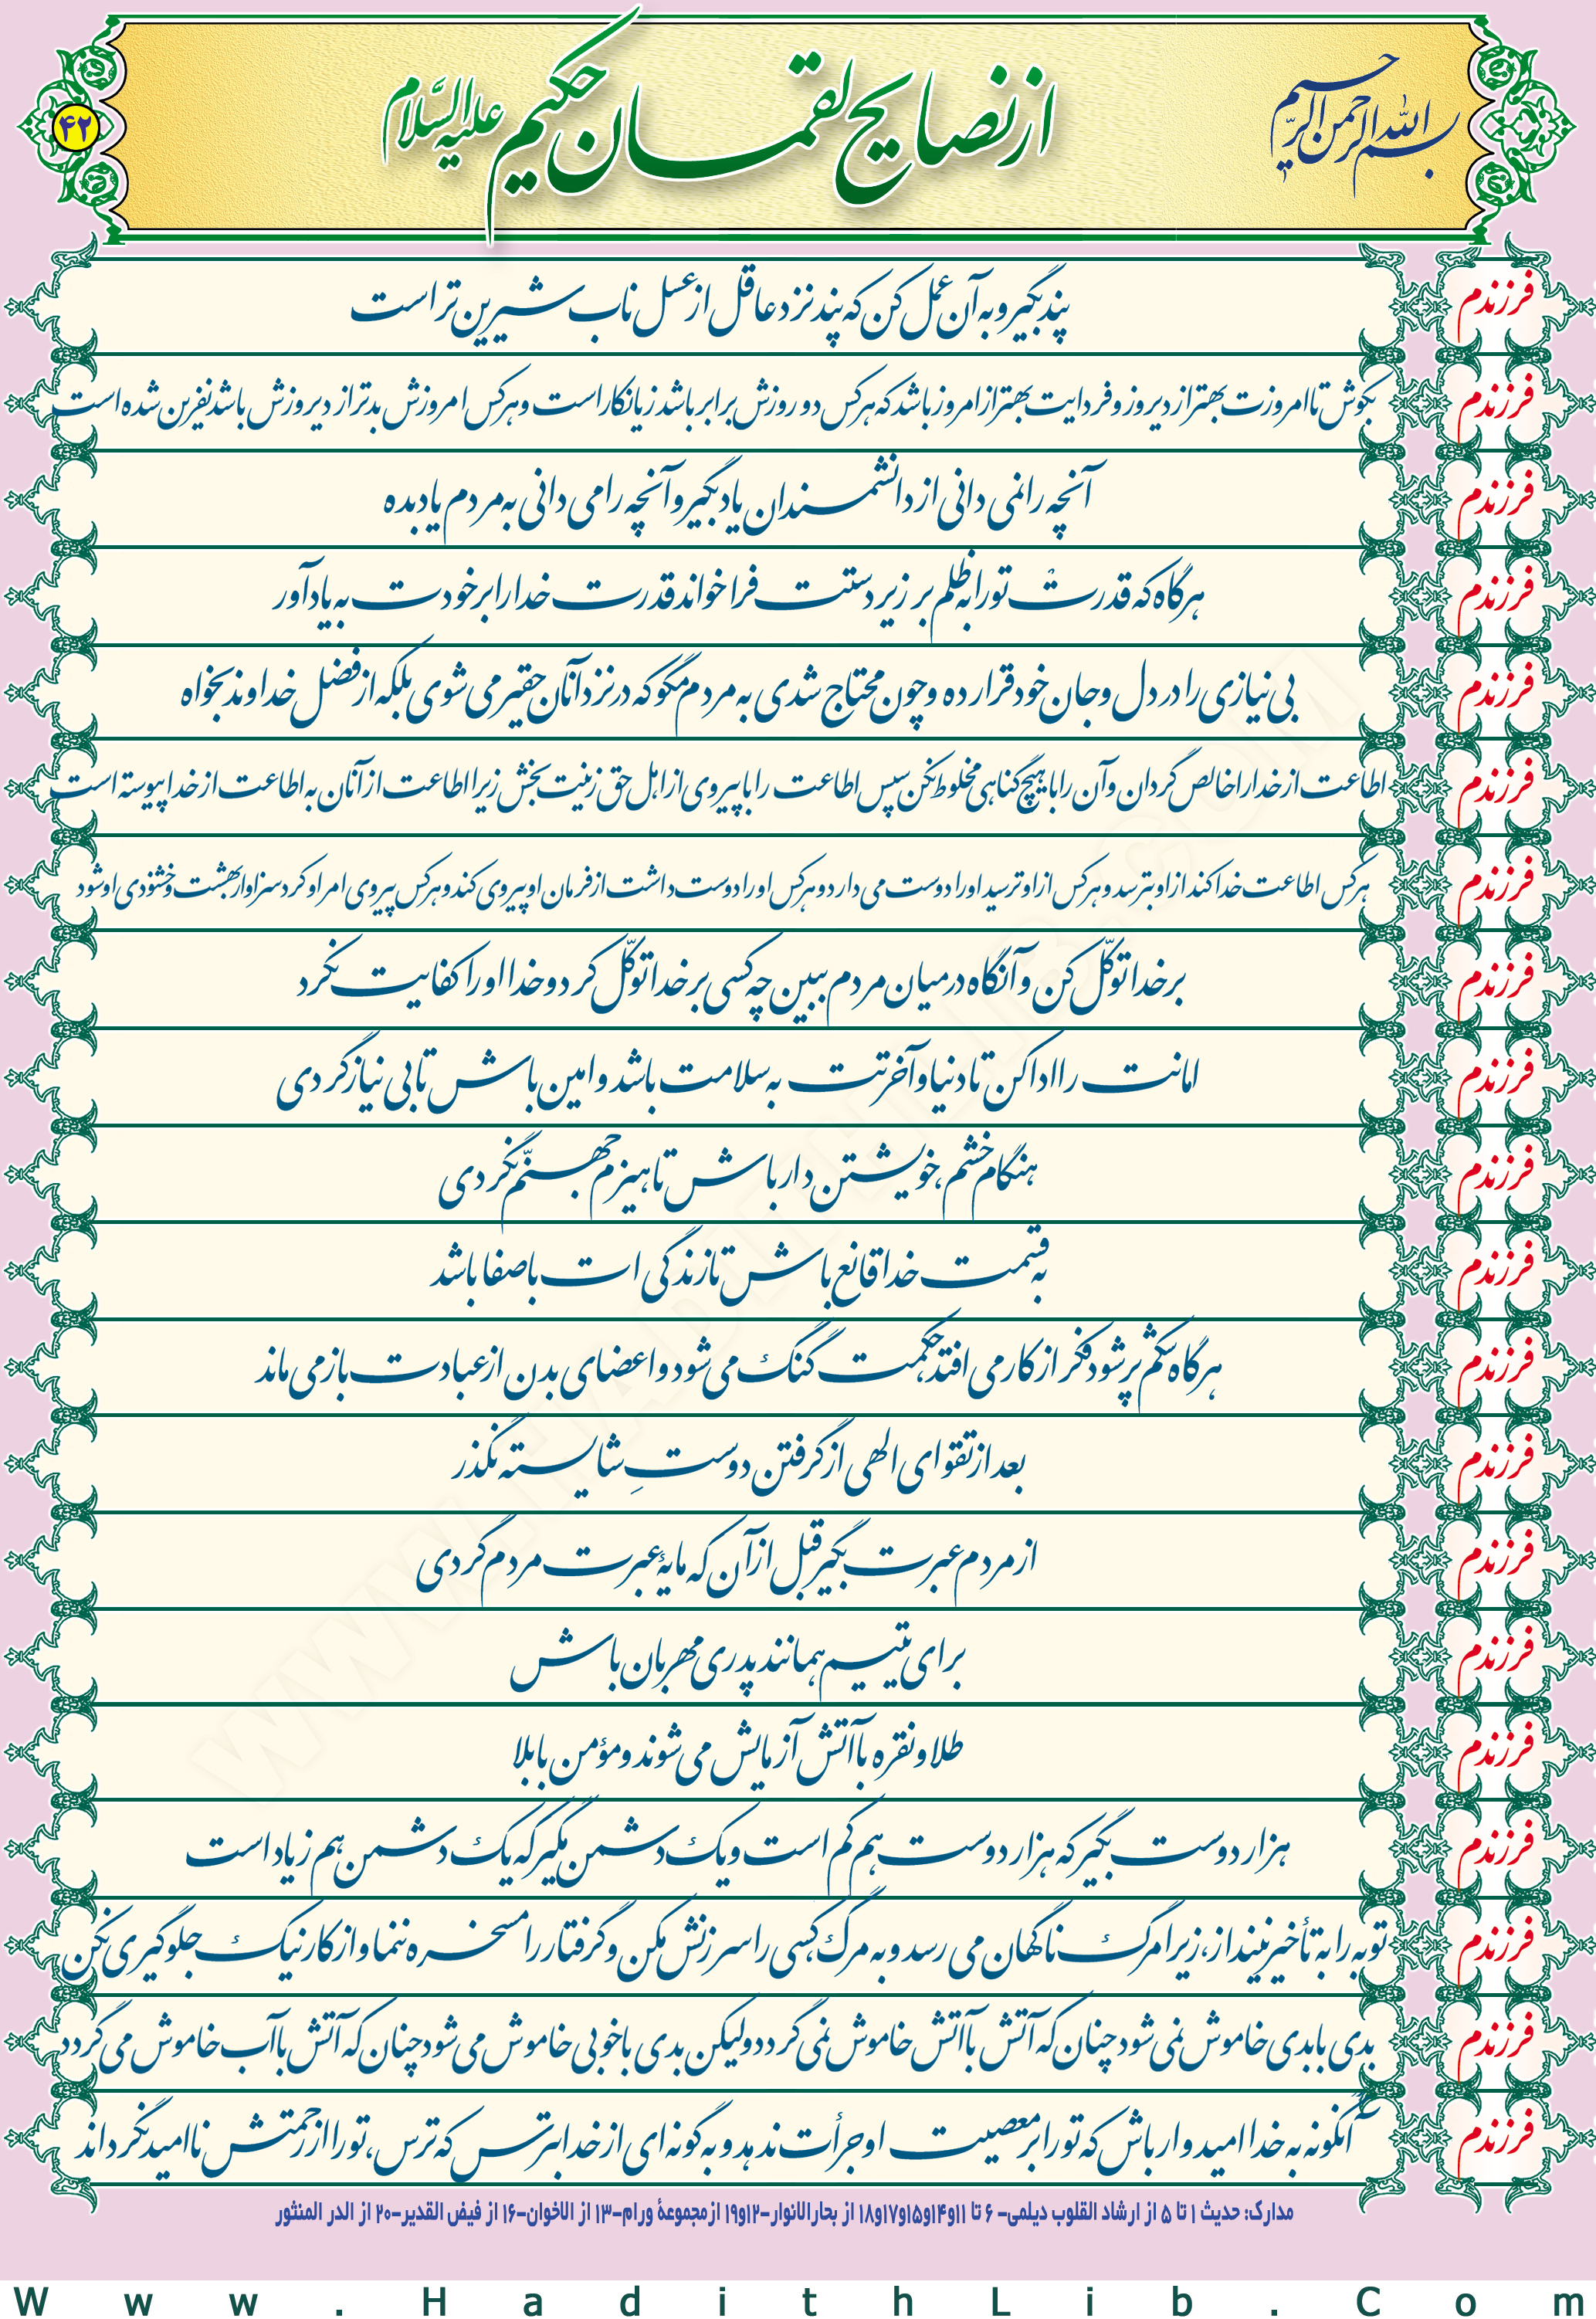 بسم الله الرحمن الرحیم
از نصایح لقمان حکیم علیه السّلام
۴۲
فرزندم پند بگیر و به آن عمل کن که پند نزد عاقل از عسل ناب شیرین تر است
فرزندم بکوش تا امروزت بهتر از دیروز و فردایت بهتر از امروز باشد که هر کس دو روزش برابر باشد زیانکار است و هر کس امروزش بدتر از دیروزش باشد نفرین شده است
فرزندم آنچه را نمی دانی از دانشمندان یاد بگیر و آنچه را می دانی به مردم یاد بده
فرزندم هرگاه که قدرتْ تو را به ظلم بر زیر دستت فرا خواند قدرت خدا را بر خودت به یاد آور
فرزندم بی نیازی را در دل و جان خود قرار ده و چون محتاج شدی به مردم مگو که در نزد آنان حقیر می شوی بلکه از فضل خداوند بخواه
فرزندم اطاعت از خدا را خالص گردان و آن را با هیچ گناهی مخلوط نکن سپس اطاعت را با پیروی از اهل حق زینت بخش زیرا اطاعت از آنان به اطاعت از خدا پیوسته است
فرزندم هر کس اطاعت خدا کند از او بترسد و هر کس از او ترسید او را دوست می دارد و هر کس او را دوست داشت از فرمان او پیروی کند و هر کس پیروی امر او کرد سزاوار بهشت و خشنودی او شود
فرزندم بر خدا توکّل کن و آنگاه در میان مردم ببین چه کسی بر خدا توکّل کرد و خدا او را کفایت نکرد
فرزندم امانت را ادا کن تا دنیا و آخرتت به سلامت باشد و امین باش تا بی نیاز گردی
فرزندم هنگام خشم، خویشتن دار باش تا هیزم جهنّم نگردی
فرزندم به قسمت خدا قانع باش تا زندگی ات با صفا باشد
فرزندم هرگاه شکم پر شود فکر از کار می افتد، حکمت گنگ می شود و اعضای بدن از عبادت باز می ماند
فرزندم بعد از تقوای الهی از گرفتن دوستِ شایسته نگذر
فرزندم از مردم عبرت بگیر قبل از آن که مایهٔ عبرت مردم گردی
فرزندم برای یتیم همانند پدری مهربان باش
فرزندم طلا و نقره با آتش آزمایش می شوند و مؤمن با بلا
فرزندم هزار دوست بگیر که هزار دوست هم کم است و یک دشمن مگیر که یک دشمن هم زیاد است
فرزندم توبه را به تأخیر نینداز، زیرا مرگ ناگهان می رسد و به مرگ کسی را سرزنش مکن و گرفتار را مسخره ننما و از کار نیک جلوگیری نکن
فرزندم بدی با بدی خاموش نمی شود چنان که آتش با آتش خاموش نمی گردد ولیکن بدی با خوبی خاموش می شود چنان که آتش با آب خاموش می گردد
فرزندم آنگونه به خدا امیدوار باش که تو را بر معصیت او جرأت ندهد و به گونه ای از خدا بترس که ترس، تو را از رحمتش ناامید نگرداند
مدارک: حدیث ۱ تا ۵ از ارشاد القلوب دیلمی- ۶ تا ۱۱و۱۴و۱۵و۱۷و۱۸ از بحارالانوار-۱۲و۱۹ از مجموعهٔ ورام-۱۳ از الاخوان-۱۶ از فیض القدیر-۲۰ از الدر المنثور
Www.HadithLib.Com